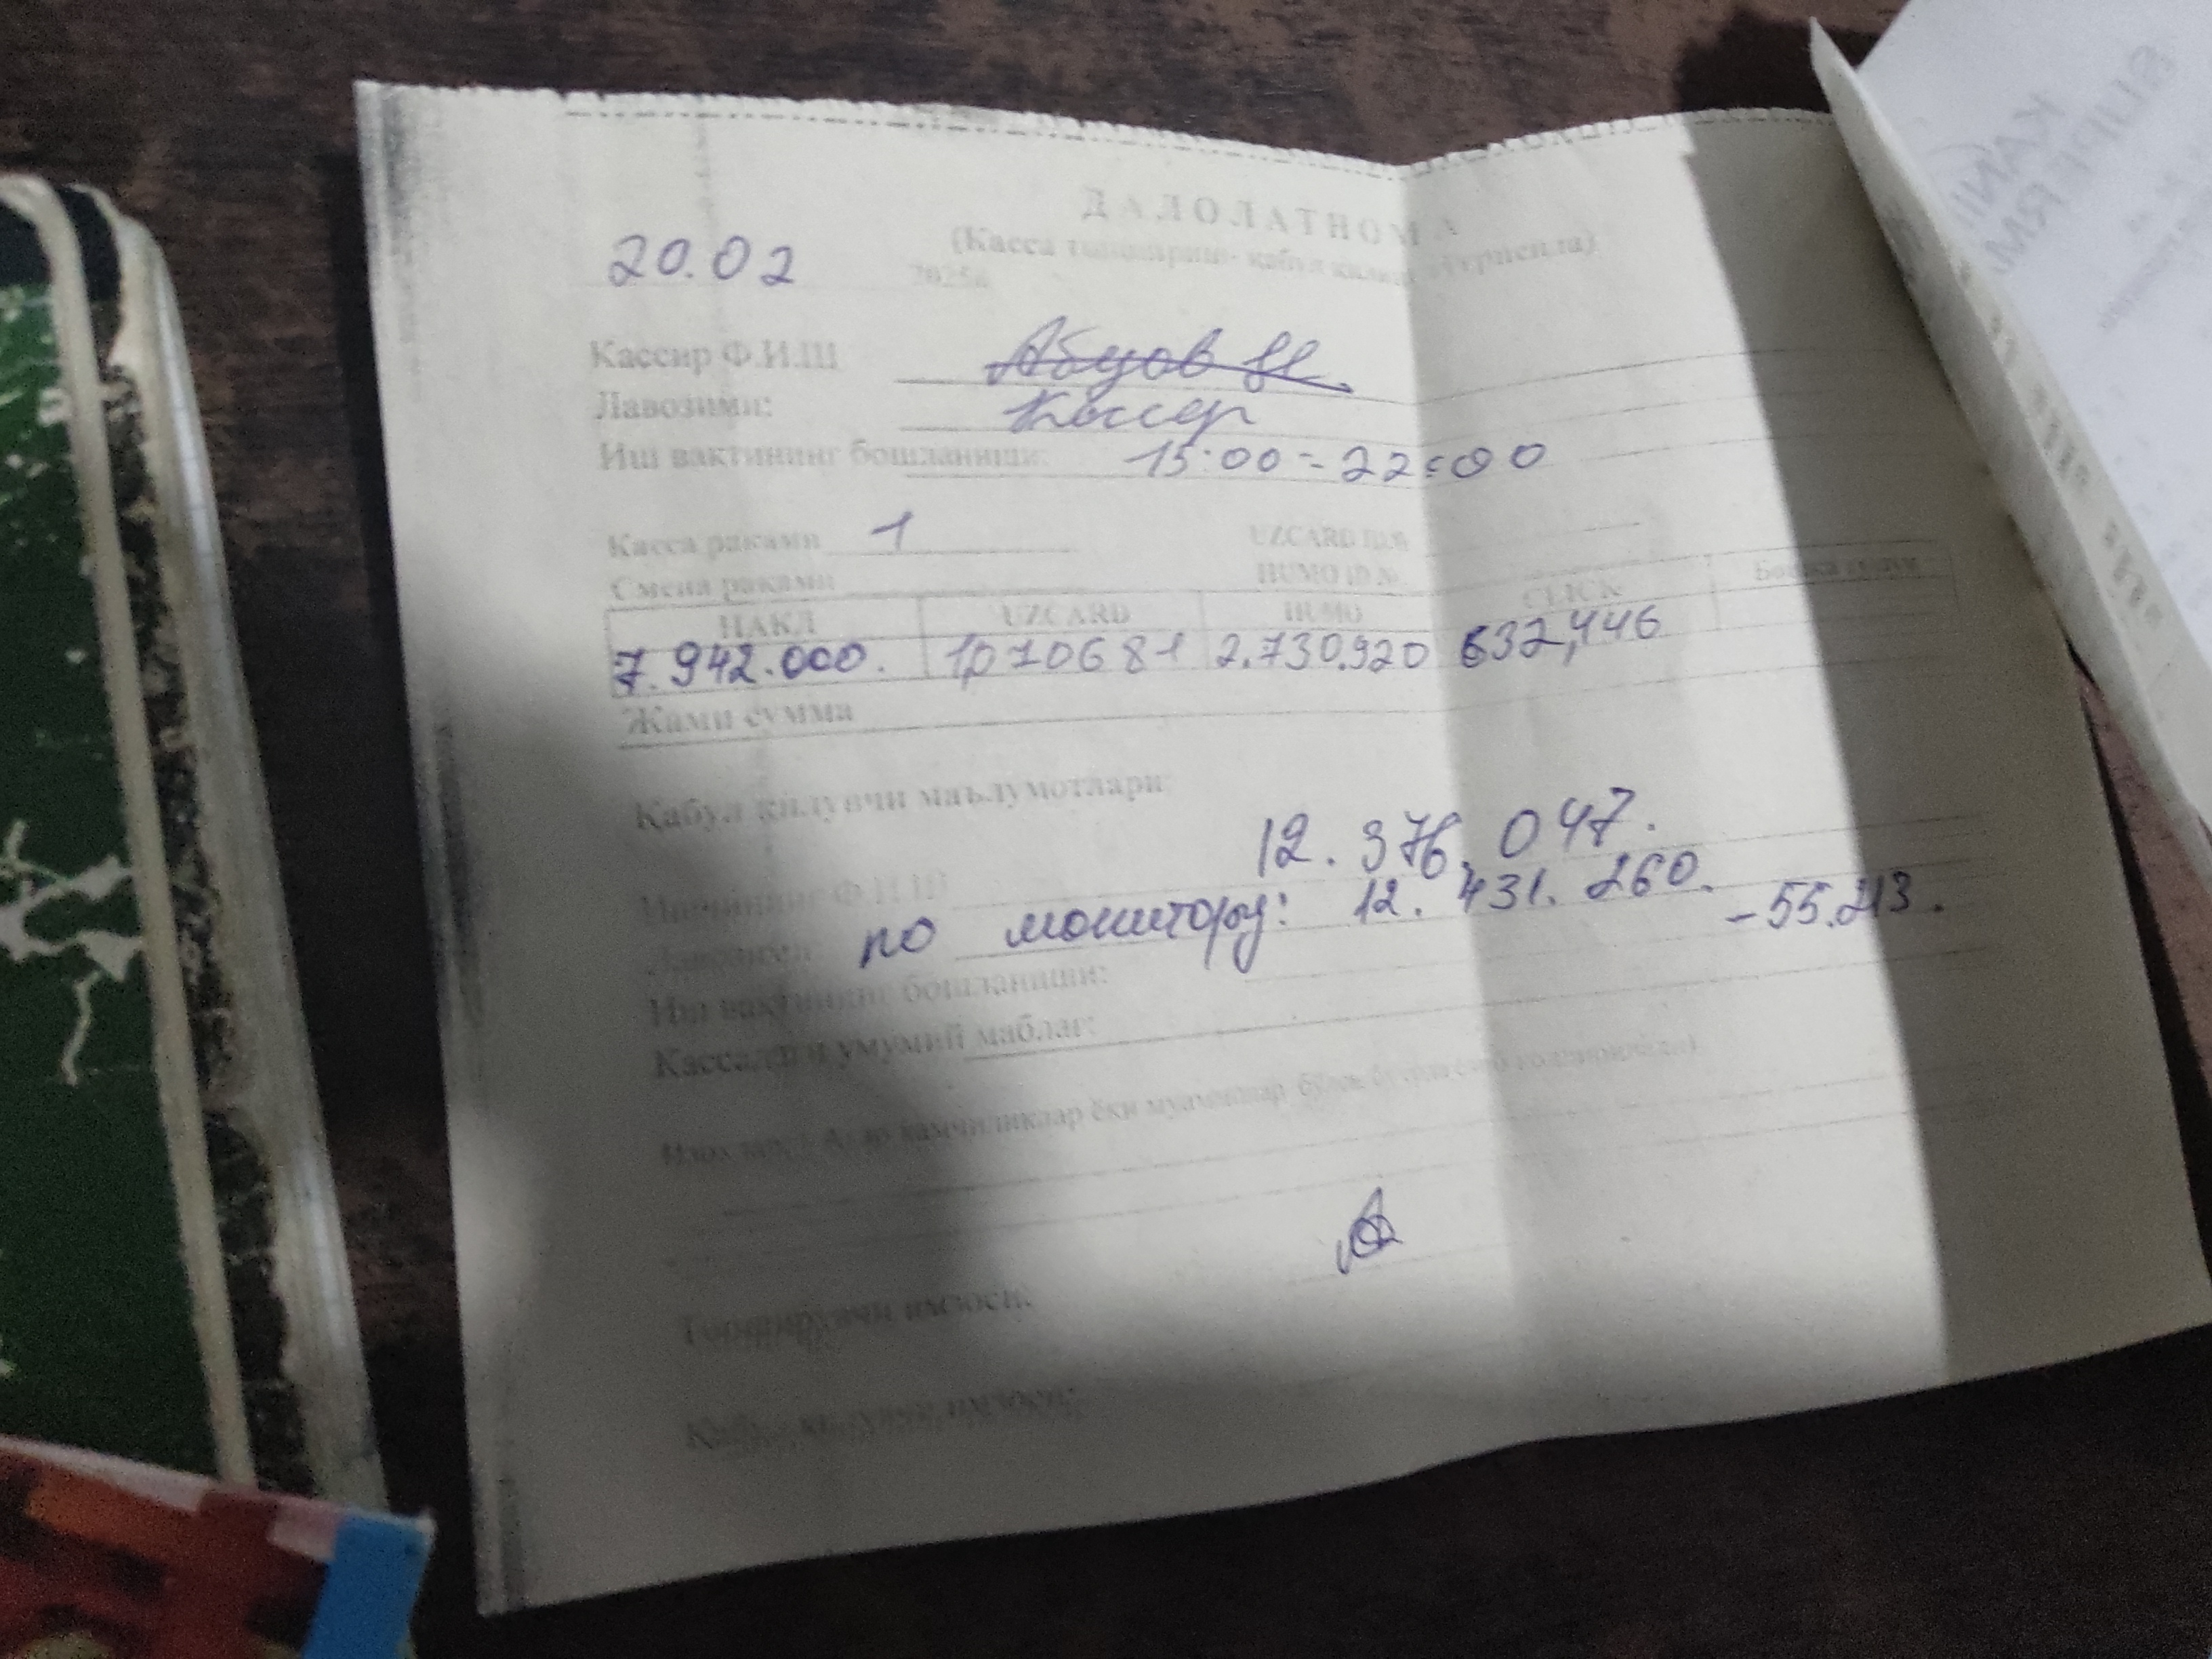 ДАЛОЛАТНОМА
(Касса топшириш- қабул
20.02 2025й
Кассир Ф.И.Ш
Лавозими: Кассер
Иш вактининг бошланиши: 15:00 - 22:00
Касса раками 1 UZCARD ID №
Смена раками HUMO ID №
НАКД UZCARD HUMO CLICK Бошка тулум
7.942.000. 1,070681 2.730.920 632,446
Жами сумма
Қабул қилувчи маълумотлари:
12.376.047.
Ф.И.Ш
по монитору: 12.431.260. -55.213.
Иш вактининг бошланиши:
Кассадаги умумий маблаг:
Агар камчиликлар ёки муаммолар
Топширувчи имзоси:
Қабул қилувчи имзоси:
SUPERM
KANI